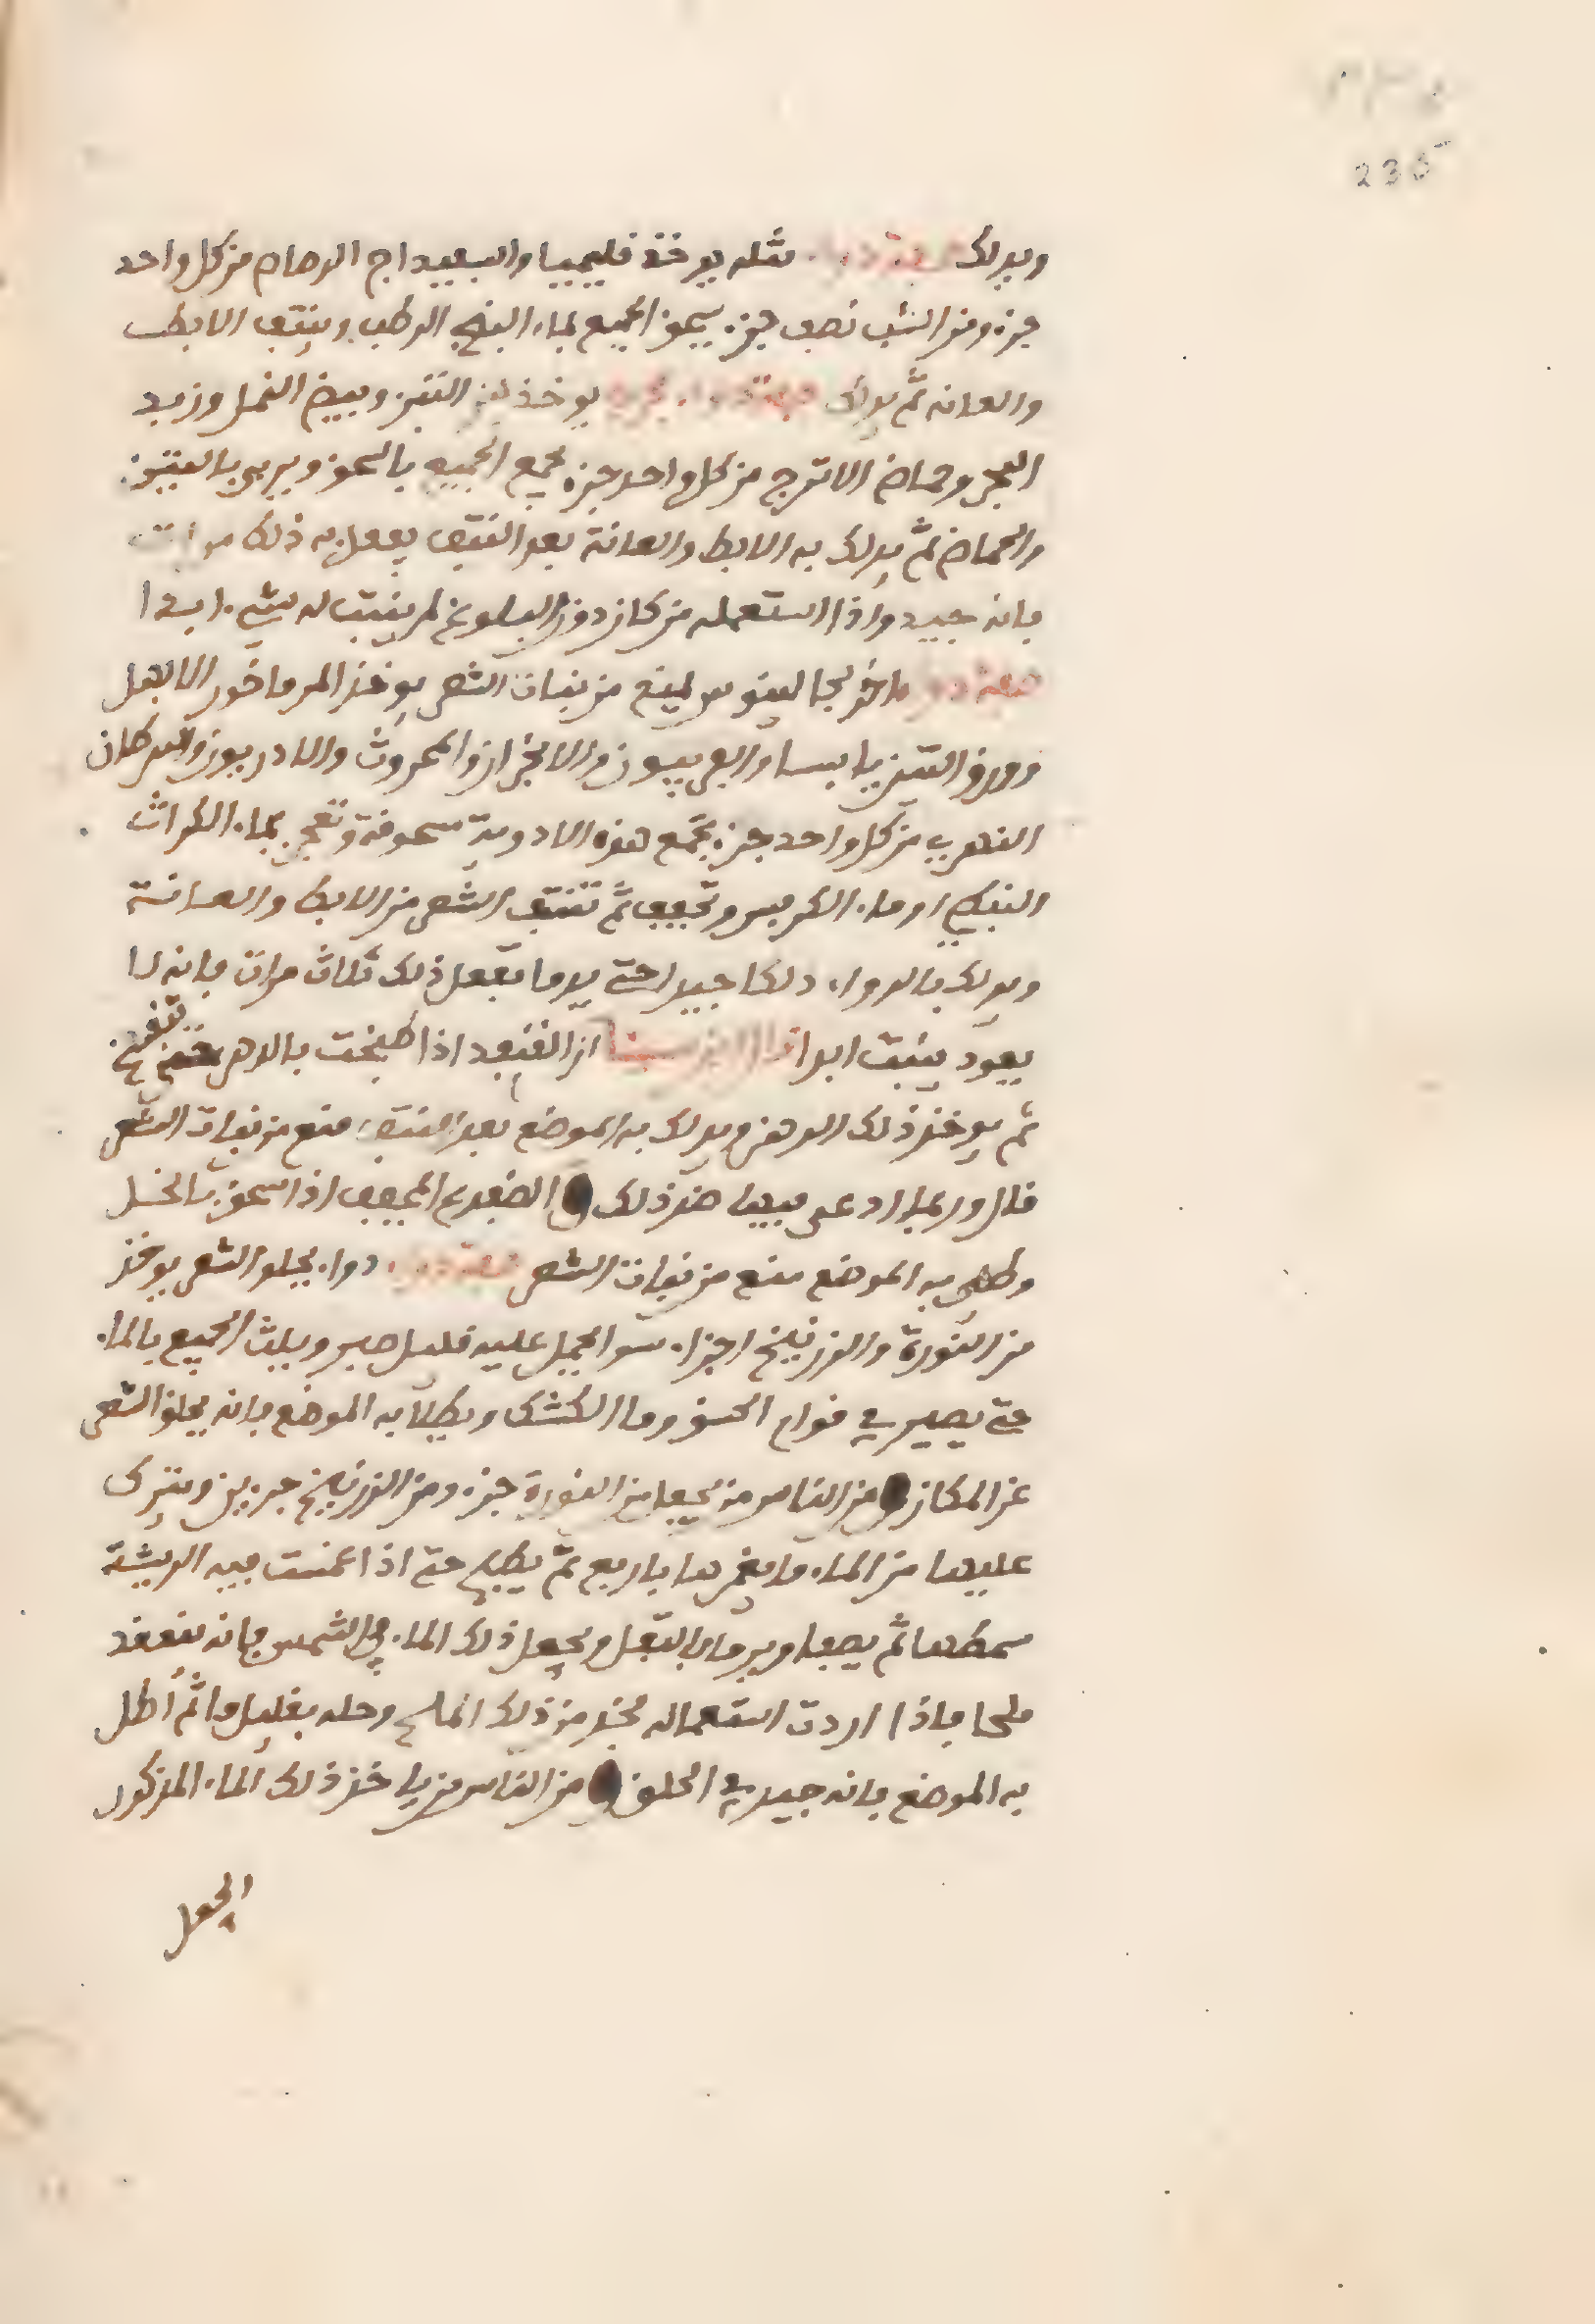 235
ويدلك صفة دواء مثله يوخذ قليميا واسبيداج الرصاص من كل واحد
جزء ومن الشب نصف جزء يسحق الجميع بماء البنج الرطب وينتف الابط
والعانه ثم يدلك صفة دواء يوخذ التين وبيض النمل وزبد
البحر وحماض الاترج من كل واحد جزء يجمع الجميع بالسحق ويربى بالتين
والحماض ثم يدلك به الابط والعانة بعد النتف يفعل به ذلك مرات
فانه جيد واذا استعمله من كان دون البلوغ لم ينبت له شيء ابدا
صفة دواء اخر لجالينوس يمنع من نبات الشعر يوخذ المرماخور الابهل
وورق التين يابسا والفربيون والانجدان والمحروث والادريون والسرطان
النهري من كل واحد جزء تجمع هذه الادوية مسحوقة وتعجن بماء الكراث
النبطي او ماء الكرفس وتجفف ثم تنتف الشعر من الابط والعانة
ويدلك بالدواء دلكا جيدا حتى يدما تفعل ذلك ثلاث مرات فانه لا
يعود ينبت ابدا قال ابن سينا ان القنفد اذا طبخت بالدهن حتى تتفسخ
ثم يوخذ ذلك الدهن ويدلك به الموضع بعد النتف منع من نبات الشعر
قال وربما ادعى فيها ضد ذلك و الضفدع المجفف اذا سحق بالخل
وطلي به الموضع منع من نبات الشعر صفة دواء يحلق الشعر يوخذ
من النورة والزرنيخ اجزاء سوا يجعل عليه قليل صبر ويلت الجميع بالماء
حتى يصير في قوام الحسو وما الكشك ويطلا به الموضع فانه يحلق الشعر
عن المكان و من الناس من يجعل من النورة جزء ومن الزرنيخ جزءين ويترك
عليها من الماء ما يغمرها باربع ثم يطبخ حتى اذا غمست فيه الريشة
سمطها ثم يصفا ويرما بالثفل ويجعل ذلك الماء في الشمس فانه ينعقد
ملحا فاذا اردت استعماله فخذ من ذلك الملح وحله بقليل ما ثم اطل
به الموضع فانه جيد في الحلق و من الناس من ياخذ ذلك الماء المذكور
الجعل